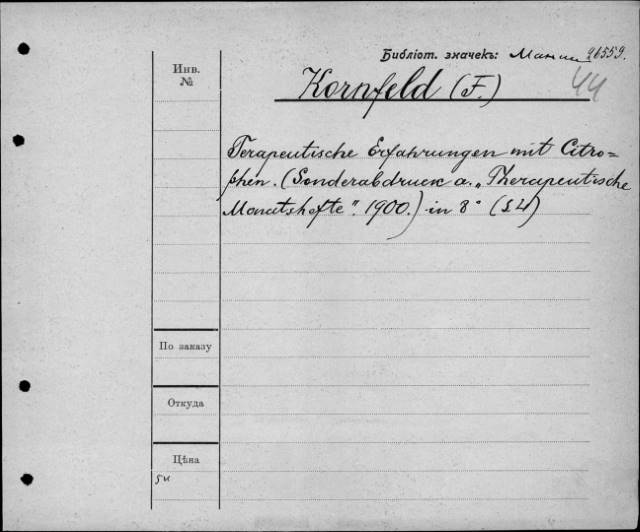 Библіот. значекъ: 26559.
44
Инв.
№
Kornfeld (F.)
Terapeutische Erfahrungen mit Citro=
phen. (Sonderabdruck a. „Therapeutische
Monatshefte". 1900.) in 8° (S4)
По заказу
Откуда
Цѣна